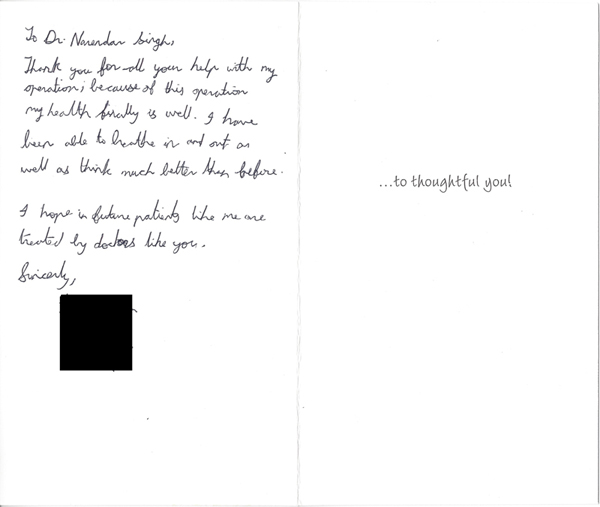 To Dr. Narendar Singh,
Thank you for all your help with my
operation; because of this operation
my health finally is well. I have
been able to breathe in and out as
well as think much better then before.
I hope in future patients like me are
treated by doctors like you.
Sincerly,
...to thoughtful you!